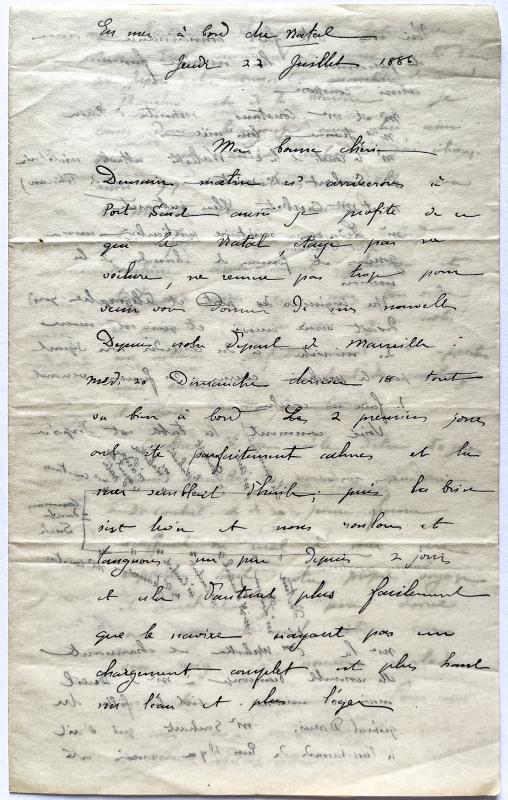 En mer à bord du Natal
Jeudi 22 Juillet 1886
Ma bonne chérie
Demain matin ns arriverons à
Port Said aussi je profite de ce
que le Natal, étayé par sa
voilure, ne remue pas trop pour
venir vous donner de mes nouvelles
Depuis notre départ de Marseille à
midi 20 Dimanche dernier 18 tout
va bien à bord Les 2 premiers jours
ont été parfaitement calmes et la
mer semblait d'huile; puis la brise
s'est levée et nous roulons et
tanguons un peu depuis 2 jours
et cela d'autant plus facilement
que le navire n'ayant pas un
chargement complet est plus haut
sur l'eau et plus léger